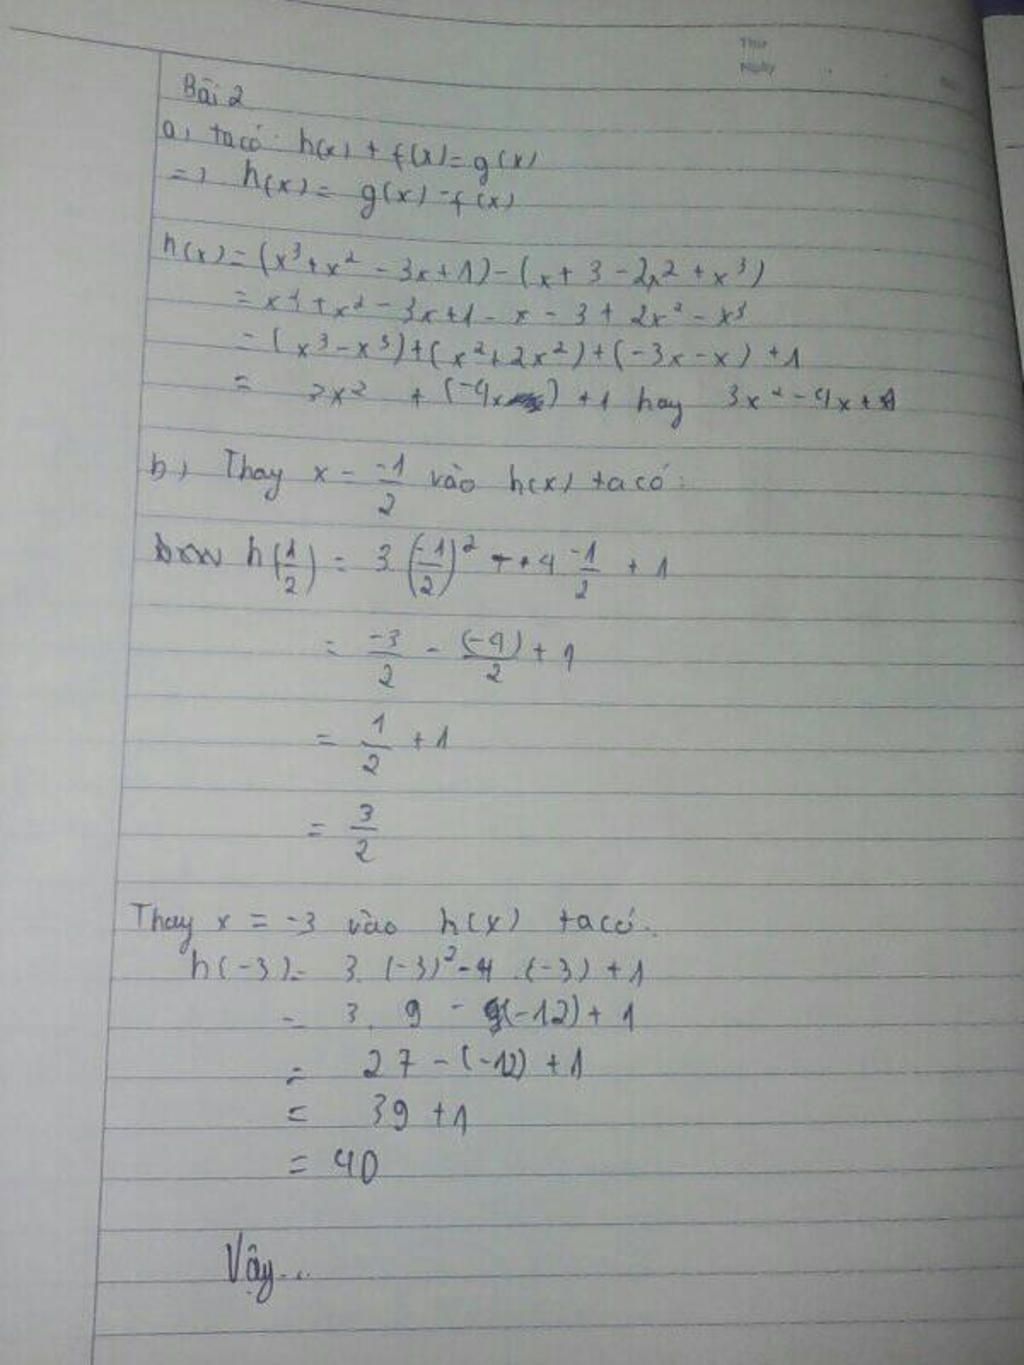 Thứ
Ngày
Bài 2
a, ta có: h(x) + f(x) = g(x)
=> h(x) = g(x) - f(x)
h(x) = (x³ + x² - 3x + 1) - (x + 3 - 2x² + x³)
= x³ + x² - 3x + 1 - x - 3 + 2x² - x³
= (x³ - x³) + (x² + 2x²) + (-3x - x) + 1
= 3x² + (-4x) + 1 hay 3x² - 4x + 1
b, Thay x = -1/2 vào h(x) ta có:
h(1/2) = 3 (-1/2)² - 4 -1/2 + 1
= -3/2 - (-4)/2 + 1
= 1/2 + 1
= 3/2
Thay x = -3 vào h(x) ta có.
h(-3) = 3. (-3)² - 4 .(-3) + 1
= 3. 9 - (-12) + 1
= 27 - (-12) + 1
= 39 + 1
= 40
Vậy...